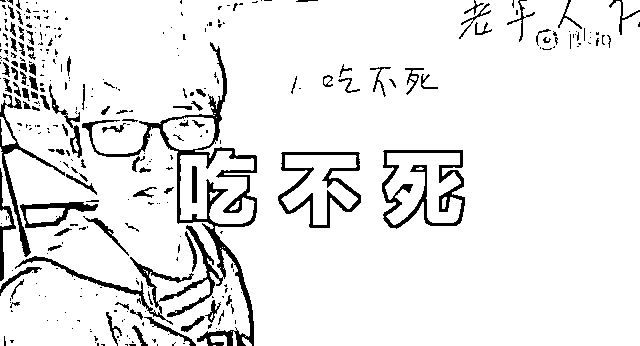 老年人
1. 吃不死
吃不死